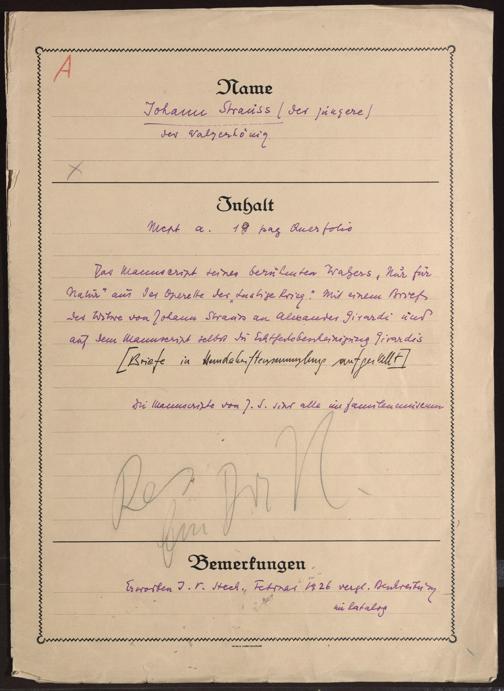 A
Name
Johann Strauss (der jüngere)
der Walzerkönig
Inhalt
Mcpt a. 19 pag Querfolio
Das Manuscript seines berühmten Walzers „Nur für
Natur" aus der Operette der „lustige Krieg". Mit einem Briefe
der Witwe von Johann Strauss an Alexander Girardi und
auf dem Manuscript selbst die Echtheitsbescheinigung Girardis
[Briefe in Handschriftensammlung aufgestellt]
Die Manuscripte von J. S. sind alle im Familienmuseum
Res
für Dr N.
Bemerkungen
Erworben J. V. Heck, Februar 1926 vergl. Beschreibung
im Katalog